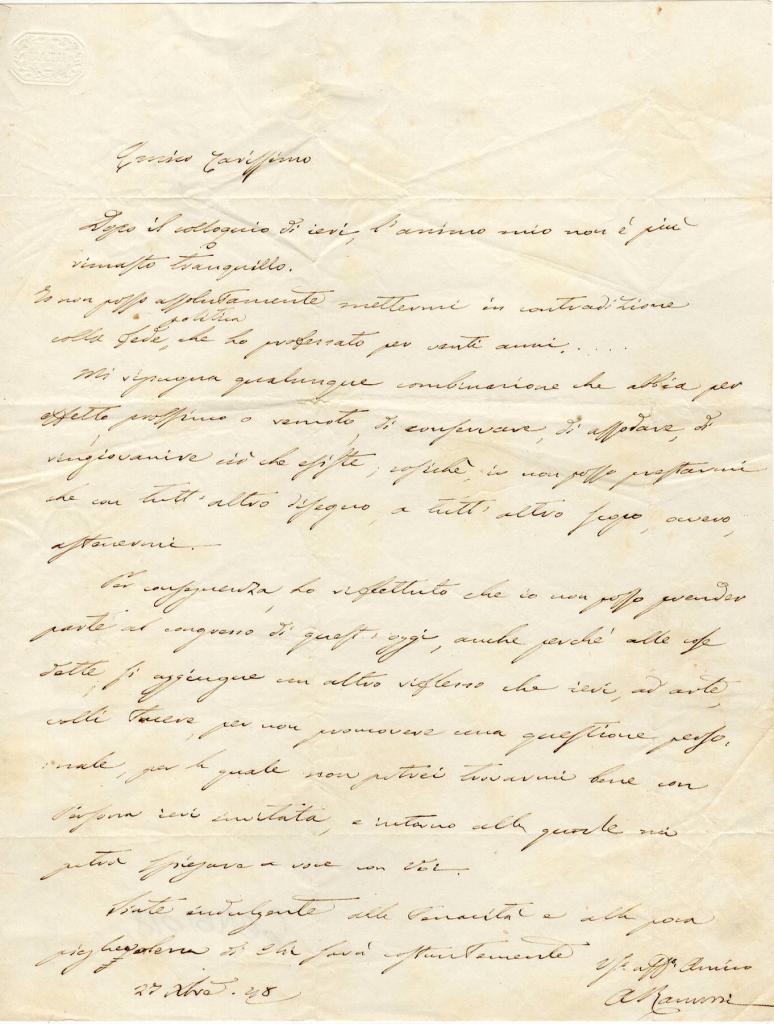 Amico Carissimo
Dopo il colloquio di ieri, l'animo mio non è più
rimasto tranquillo.
Io non posso assolutamente mettermi in contradizione
colla fede politica, che ho professato per venti anni.....
Mi ripugna qualunque combinazione che abbia per
effetto prossimo o remoto, di conservare, di assodare, di
ringiovanire ciò che esiste; cosichè, io non posso prestarmi
che con tutt'altro disegno, a tutt'altro scopo, ovvero,
astenermi.—
Per conseguenza, ho riflettuto che io non posso prender
parte al congresso di quest'oggi, anche perché alle cose
dette, si aggiungue un altro riflesso che ieri, ad arte,
volli tacere, per non promovere una questione perso-
nale, per la quale non potrei trovarmi bene con
Persona ieri invitata, e intorno alla quale mi
potrò spiegare a voce con Voi.
Siate indulgente alla tenacità e alla poca
pieghevolezza di chi sarà costantemente
Vo. affo. Amico
27 Xbre. 48